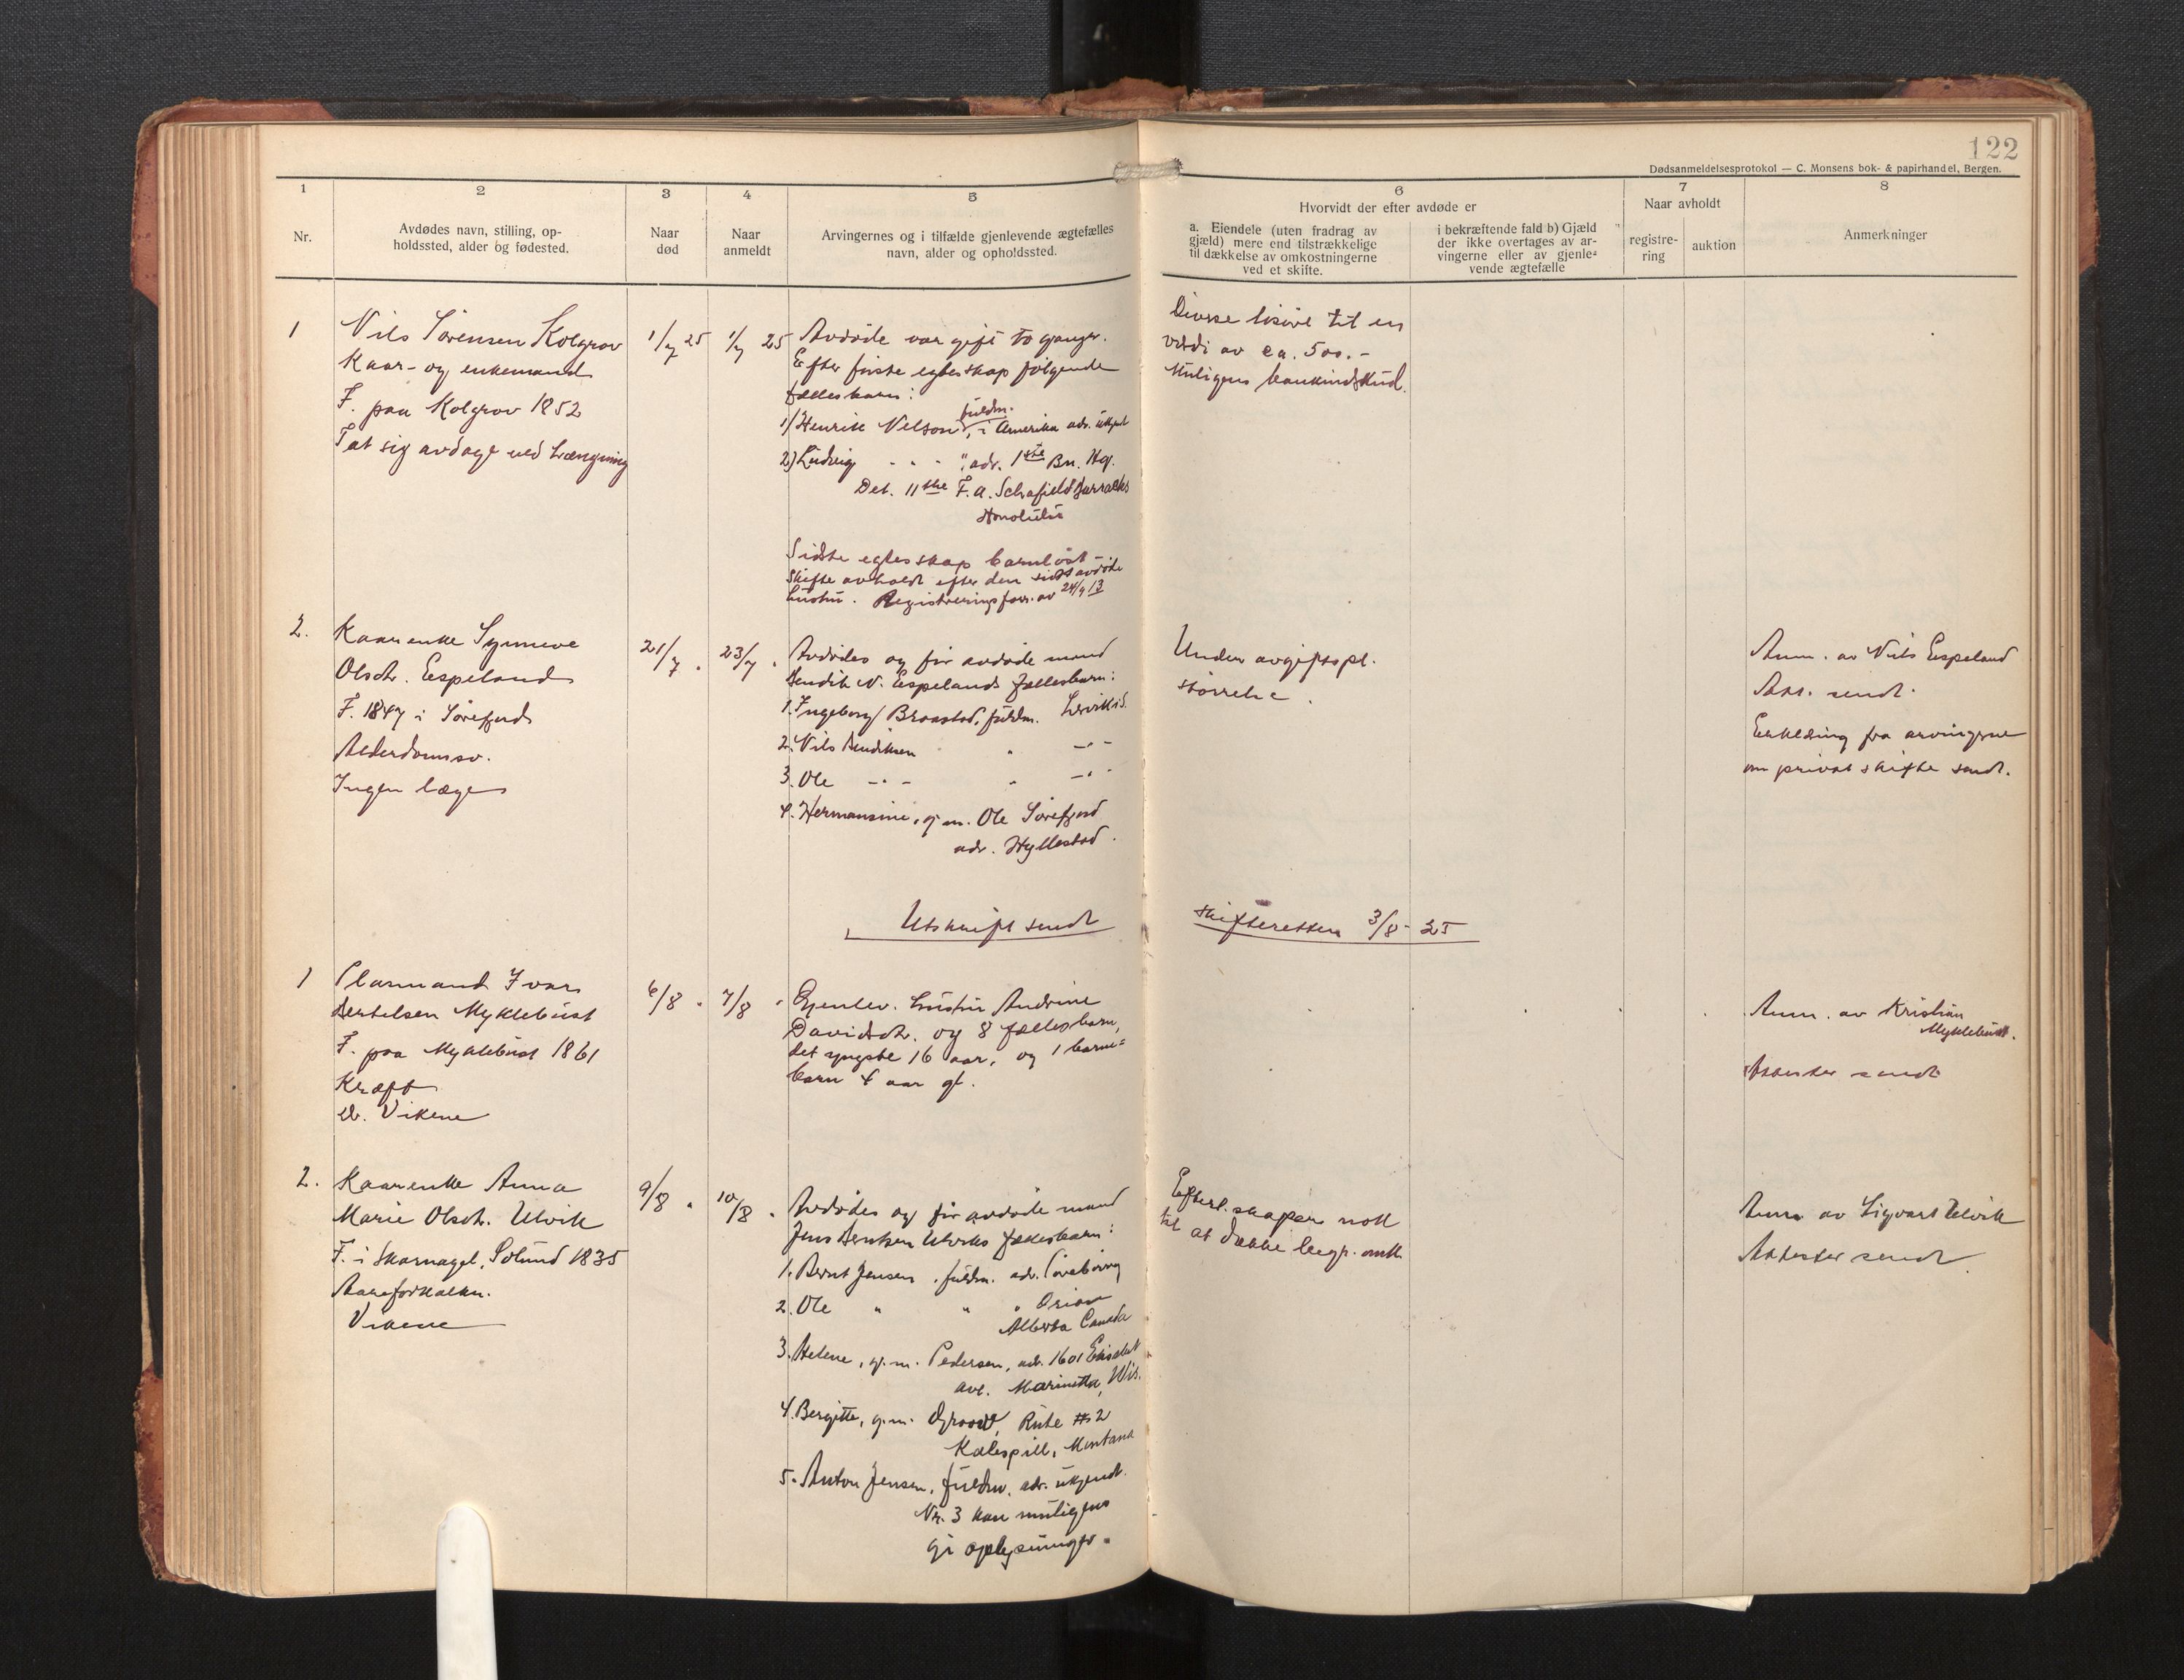 122
Dødsanmeldelsesprotokol — C. Monsens bok- & papirhandel, Bergen.
1 2 3 4 5 6 7 8
Nr.
Avdødes navn, stilling, op-
holdssted, alder og fødested.
Naar
død
Naar
anmeldt
Arvingernes og i tilfælde gjenlevende ægtefælles
navn, alder og opholdssted.
Hvorvidt der efter avdøde er
a. Eiendele (uten fradrag av
gjæld) mere end tilstrækkelige
til dækkelse av omkostningerne
ved et skifte.
i bekræftende fald b) Gjæld
der ikke overtages av ar-
vingerne eller av gjenle-
vende ægtefælle
Naar avholdt
registre-
ring
auktion
Anmerkninger
1
Nils Sörensen Kolgrov
Kaar- og enkemand
F. paa Kolgrov 1852
Tat sig avdage ved hængning
1/7 25
1/7 25
Avdøde var gift to ganger.
Efter første egteskap følgende
fællesbarn:
1) Henrik Nelson, fuldm. i Amerika adr. ukjent
2) Ludvig - - - " adr. 1ste Bn. Hq.
Det. 11the F.A. Schofield Barracks
Honolulu
Sidste egteskap barnløst
Skifte avholdt efter den sidst avdøde
hustru. Registreringsforr. av 24/9 13
Diverse løsøre til en
værdi av ca. 500.-
Muligens bankindskud.
2.
Kaarenke Synneve
Olsdtr. Espeland
F. 1847 i Sörefjord
Alderdomssv.
Ingen læge
21/7 "
23/7 "
Avdødes og før avdøde mand
Bendik N. Espelands fællesbarn:
1. Ingeborg Braastad, fuldm.
2. Nils Bendiksen " -"-
3. Ole -"- " -"-
4. Hermansine, g. m. Ole Sörefjord
adr. Hyllestad.
Under avgiftspl.
størrelse.
Anm. av Nils Espeland
Att. sendt.
Erklæring fra arvingerne
om privat skifte sendt.
Utskrift sendt skifteretten 3/8- 25
1
Plasmand Ivar
Bertelsen Myklebust
F. paa Myklebust 1861
Kræft
Dr. Vikene
6/8 "
7/8 "
Gjenlev. hustru Andrine
Davidsdtr. og 8 fællesbarn,
det yngste 16 aar, og 1 barne-
barn 4 aar gl.
Anm. av Kristian
Myklebust.
Attester sendt
2.
Kaarenke Anna
Marie Olsdtr. Ulvik
F. i Skarnagel, Solund 1835
Aareforkalkn.
Vikene
9/8 "
10/8 "
Avdødes og før avdøde mand
Jens Berntsen Ulviks fællesbarn:
1. Bernt Jensen, fuldm. adr.
2. Ole " " "
Alberta Canada
3. Helene, g. m. Pedersen, adr. 1601 Elisabet
ave. Marinette, Wis.
4. Bergitte, g. m. Rute # 2
Kalispell, Montana
5. Anton Jensen, fuldm. adr. ukjendt.
Nr. 3 kan muligens
gi oplysninger.
Efterl. skaper nok
til at dække begr. omk.
Anm. av Sigvart Ulvik
Attester sendt.